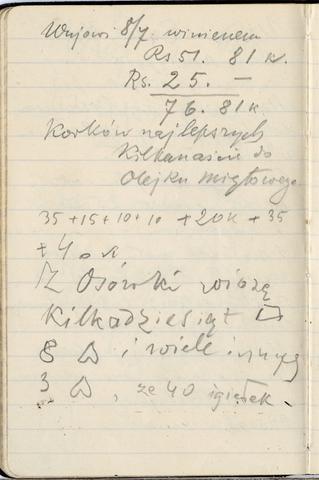 Wujowi 8/7 winienem
Rs 51. 81 k.
Rs. 25. —
76. 81 k
Korków najlepszych
Kilkanaście do
Olejku miętowego
35 + 15 + 10 + 10 + 20 k + 35
+ 40 k
Z Osówki wiozę
Kilkadziesiąt
8 i wiele innych
3 , ze 40 igiełek.